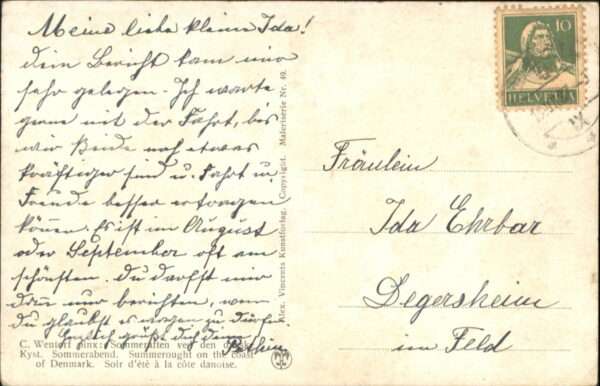 Meine liebe kleine Ida!
dein Bericht kam mir
sehr gelegen. Ich warte
gerne mit der Fahrt, bis
wir Beide noch etwas
kräftiger sind u. Fahrt u.
Freude besser ertragen
können. Es ist im August
oder September oft am
schönsten. Du darfst mir
dann nur berichten, wenn
du glaubst es wagen zu dürfen.
Herzlich grüßt dich deine
C. Wentorf pinx: Sommeraften ved den
Kyst. Sommerabend. Summernought on the coast
of Denmark. Soir d'été à la côte danoise.
Alex. Vincents Kunstforlag. Copyright. Malerisérie Nr. 49.
10
HELVETIA
IX
Fräulein
Ida Ehrbar
Degersheim
im Feld